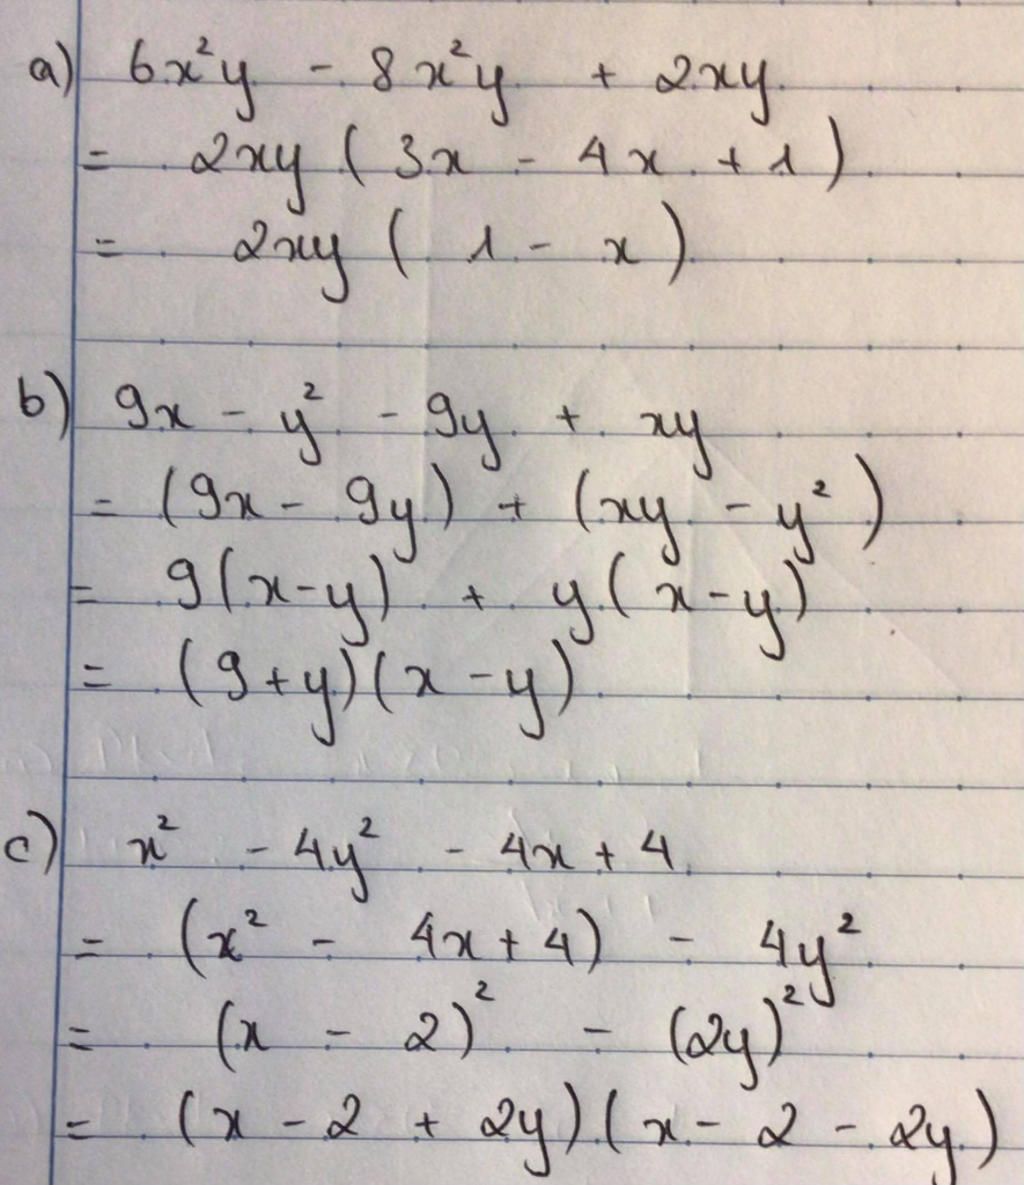 a) 6x²y - 8x²y + 2xy
= 2xy ( 3x - 4x + 1 )
= 2xy ( 1 - x )
b) 9x - y² - 9y + xy
= (9x - 9y) + (xy - y²)
= 9(x-y) + y(x-y)
= (9+y)(x-y)
c) x² - 4y² - 4x + 4
= (x² - 4x + 4) - 4y²
= (x - 2)² - (2y)²
= (x - 2 + 2y)(x - 2 - 2y)